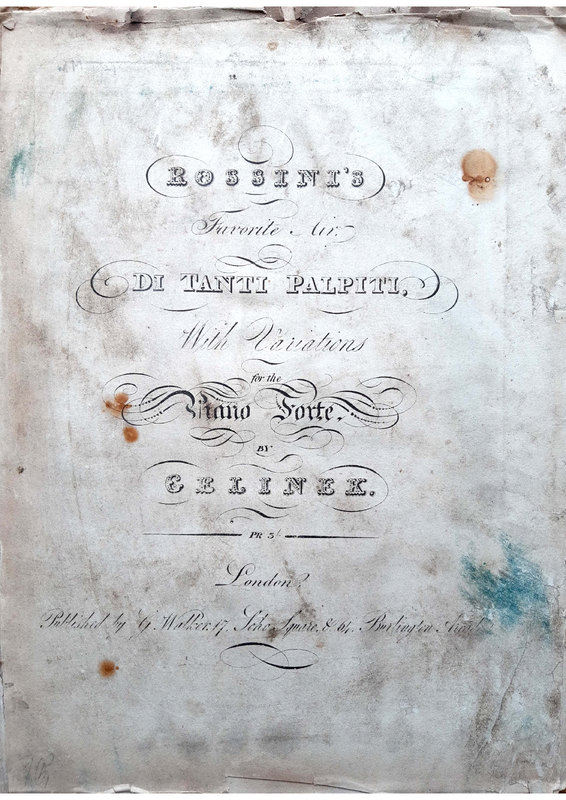 ROSSINI'S
Favorite Air
DI TANTI PALPITI,
With Variations
for the
Piano Forte,
BY
GELINEK.
PR 3/
London
Published by G. Walker, 17, Soho Square, & 64, Burlington